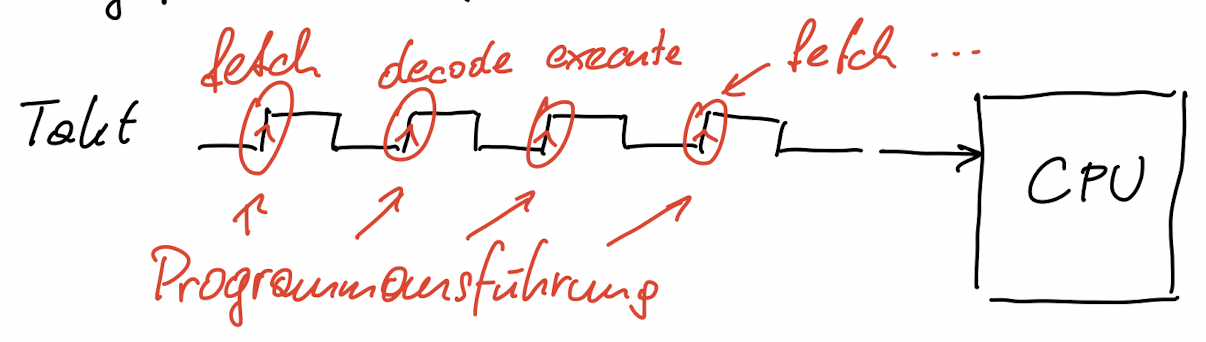 fetch decode execute fetch ...
Takt
CPU
Programmausführung